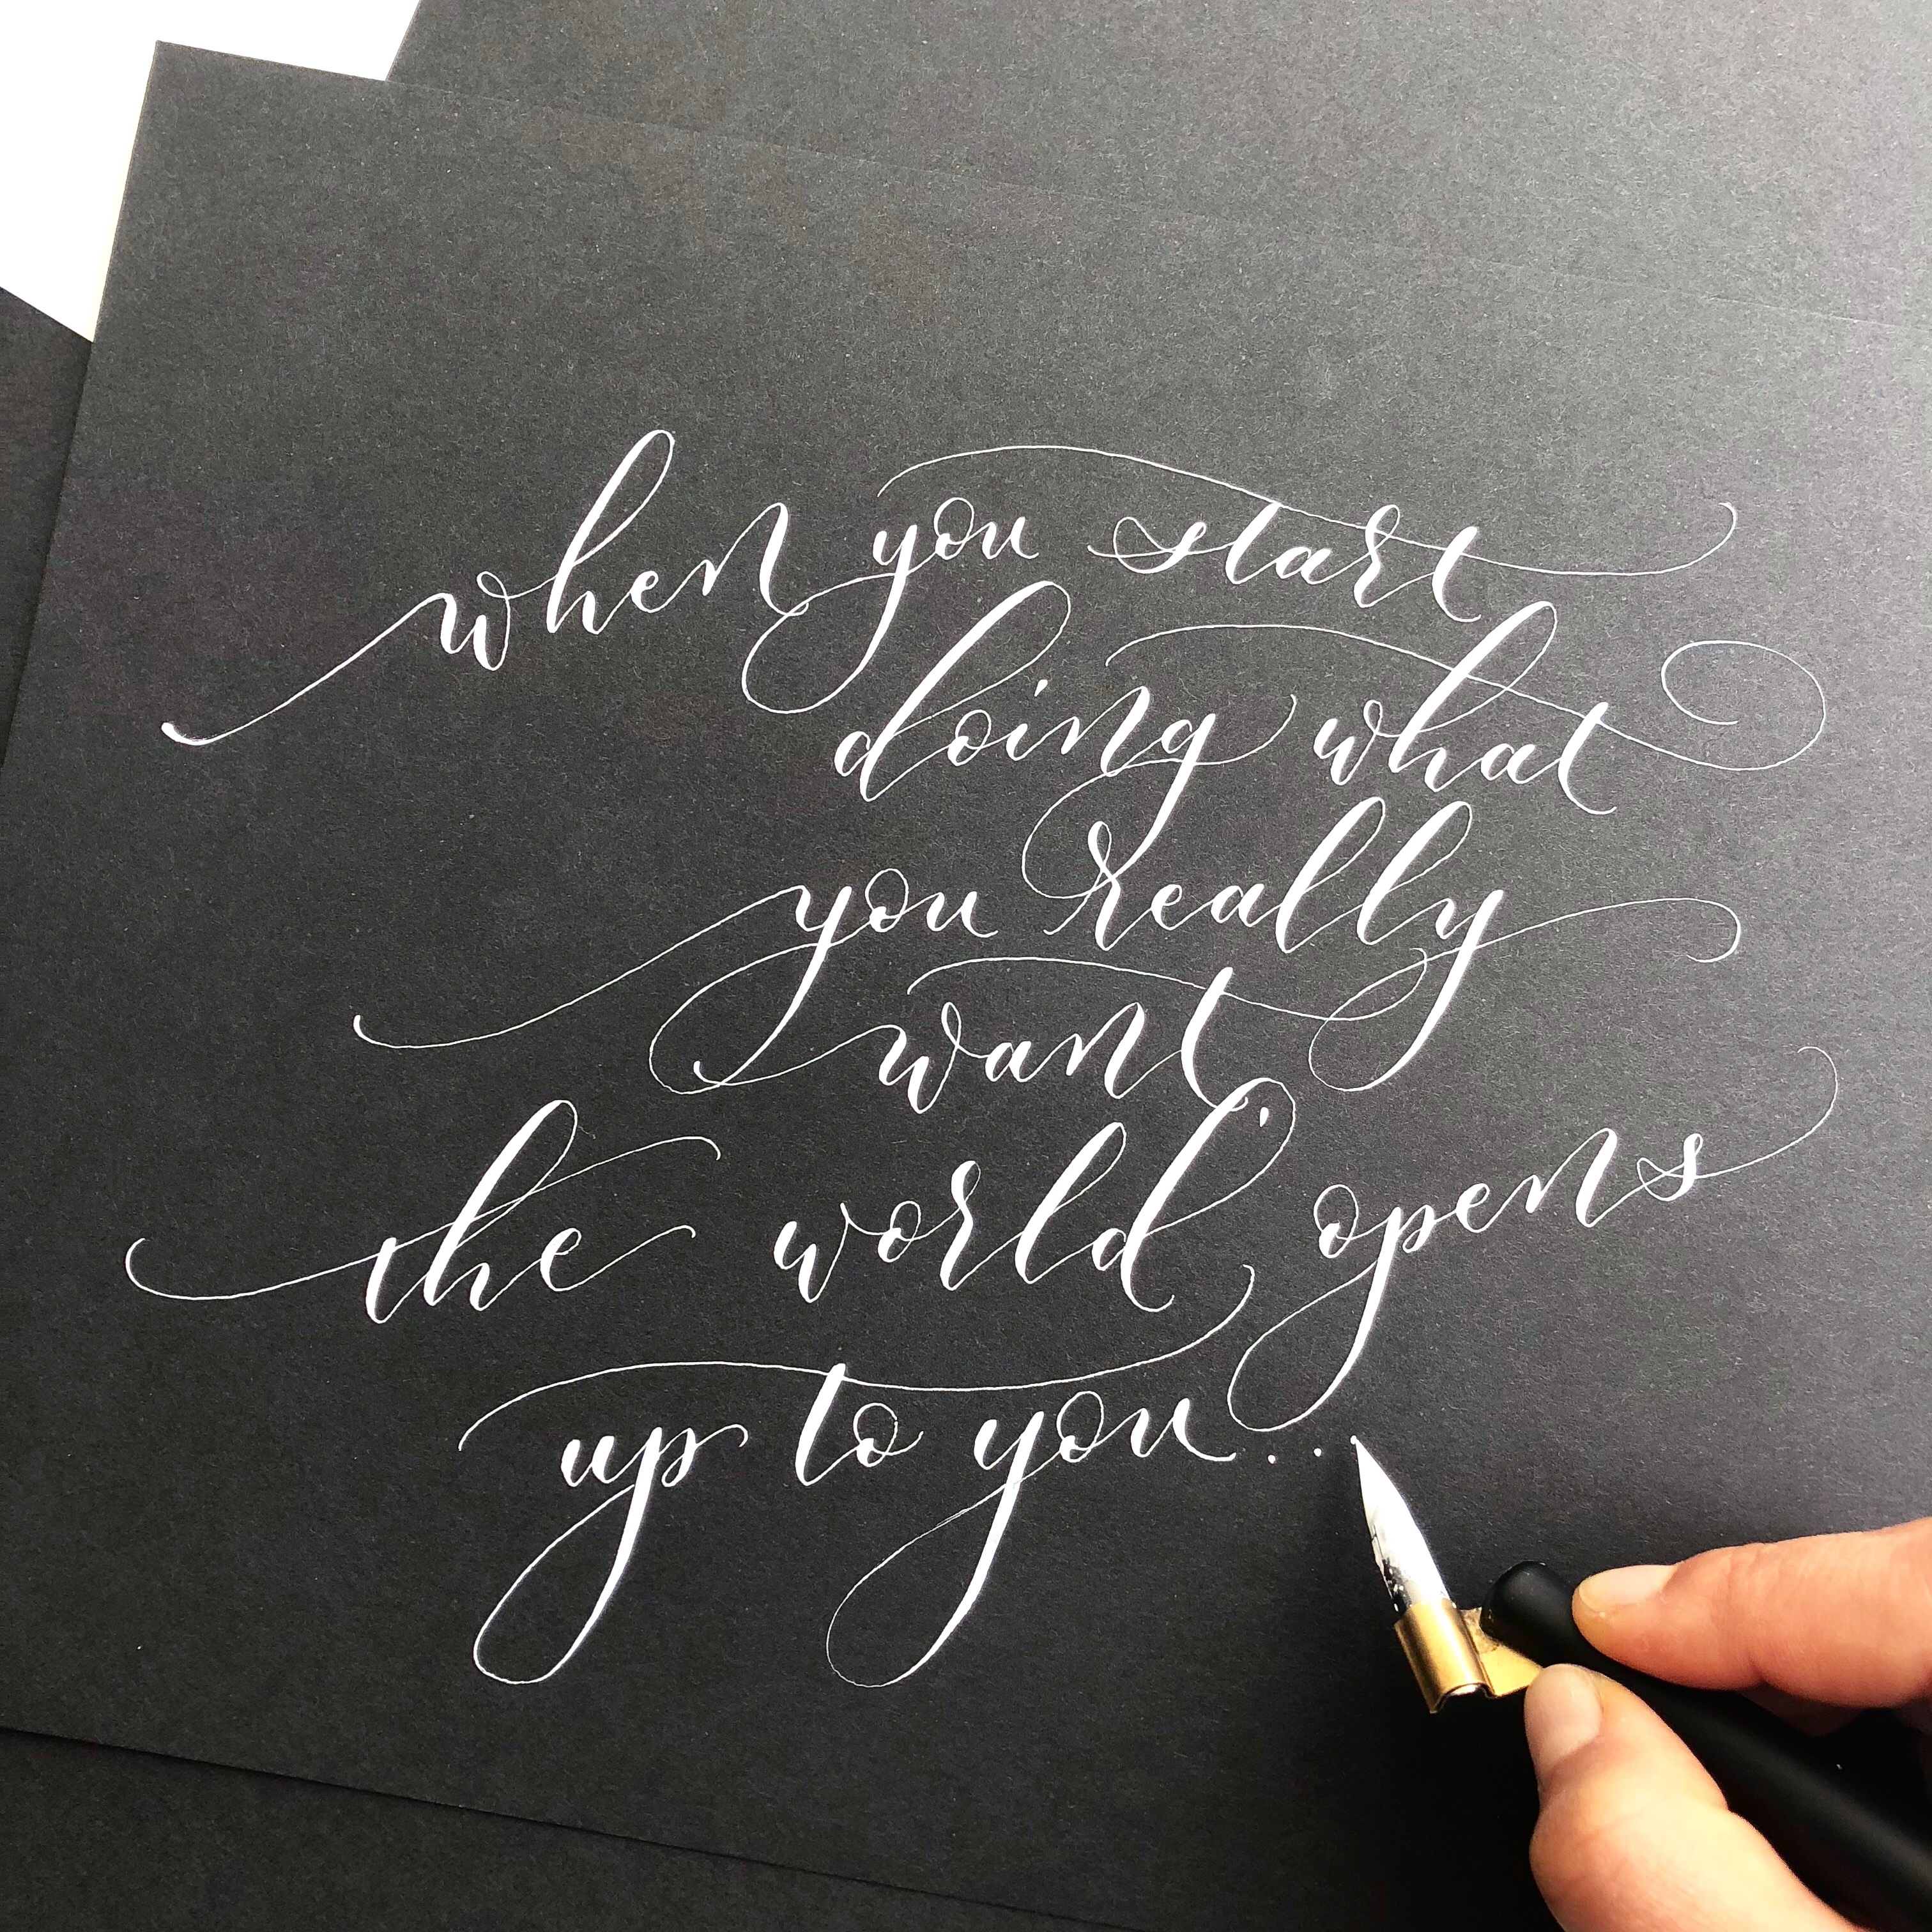 when you start
doing what
you really
want,
the world opens
up to you...